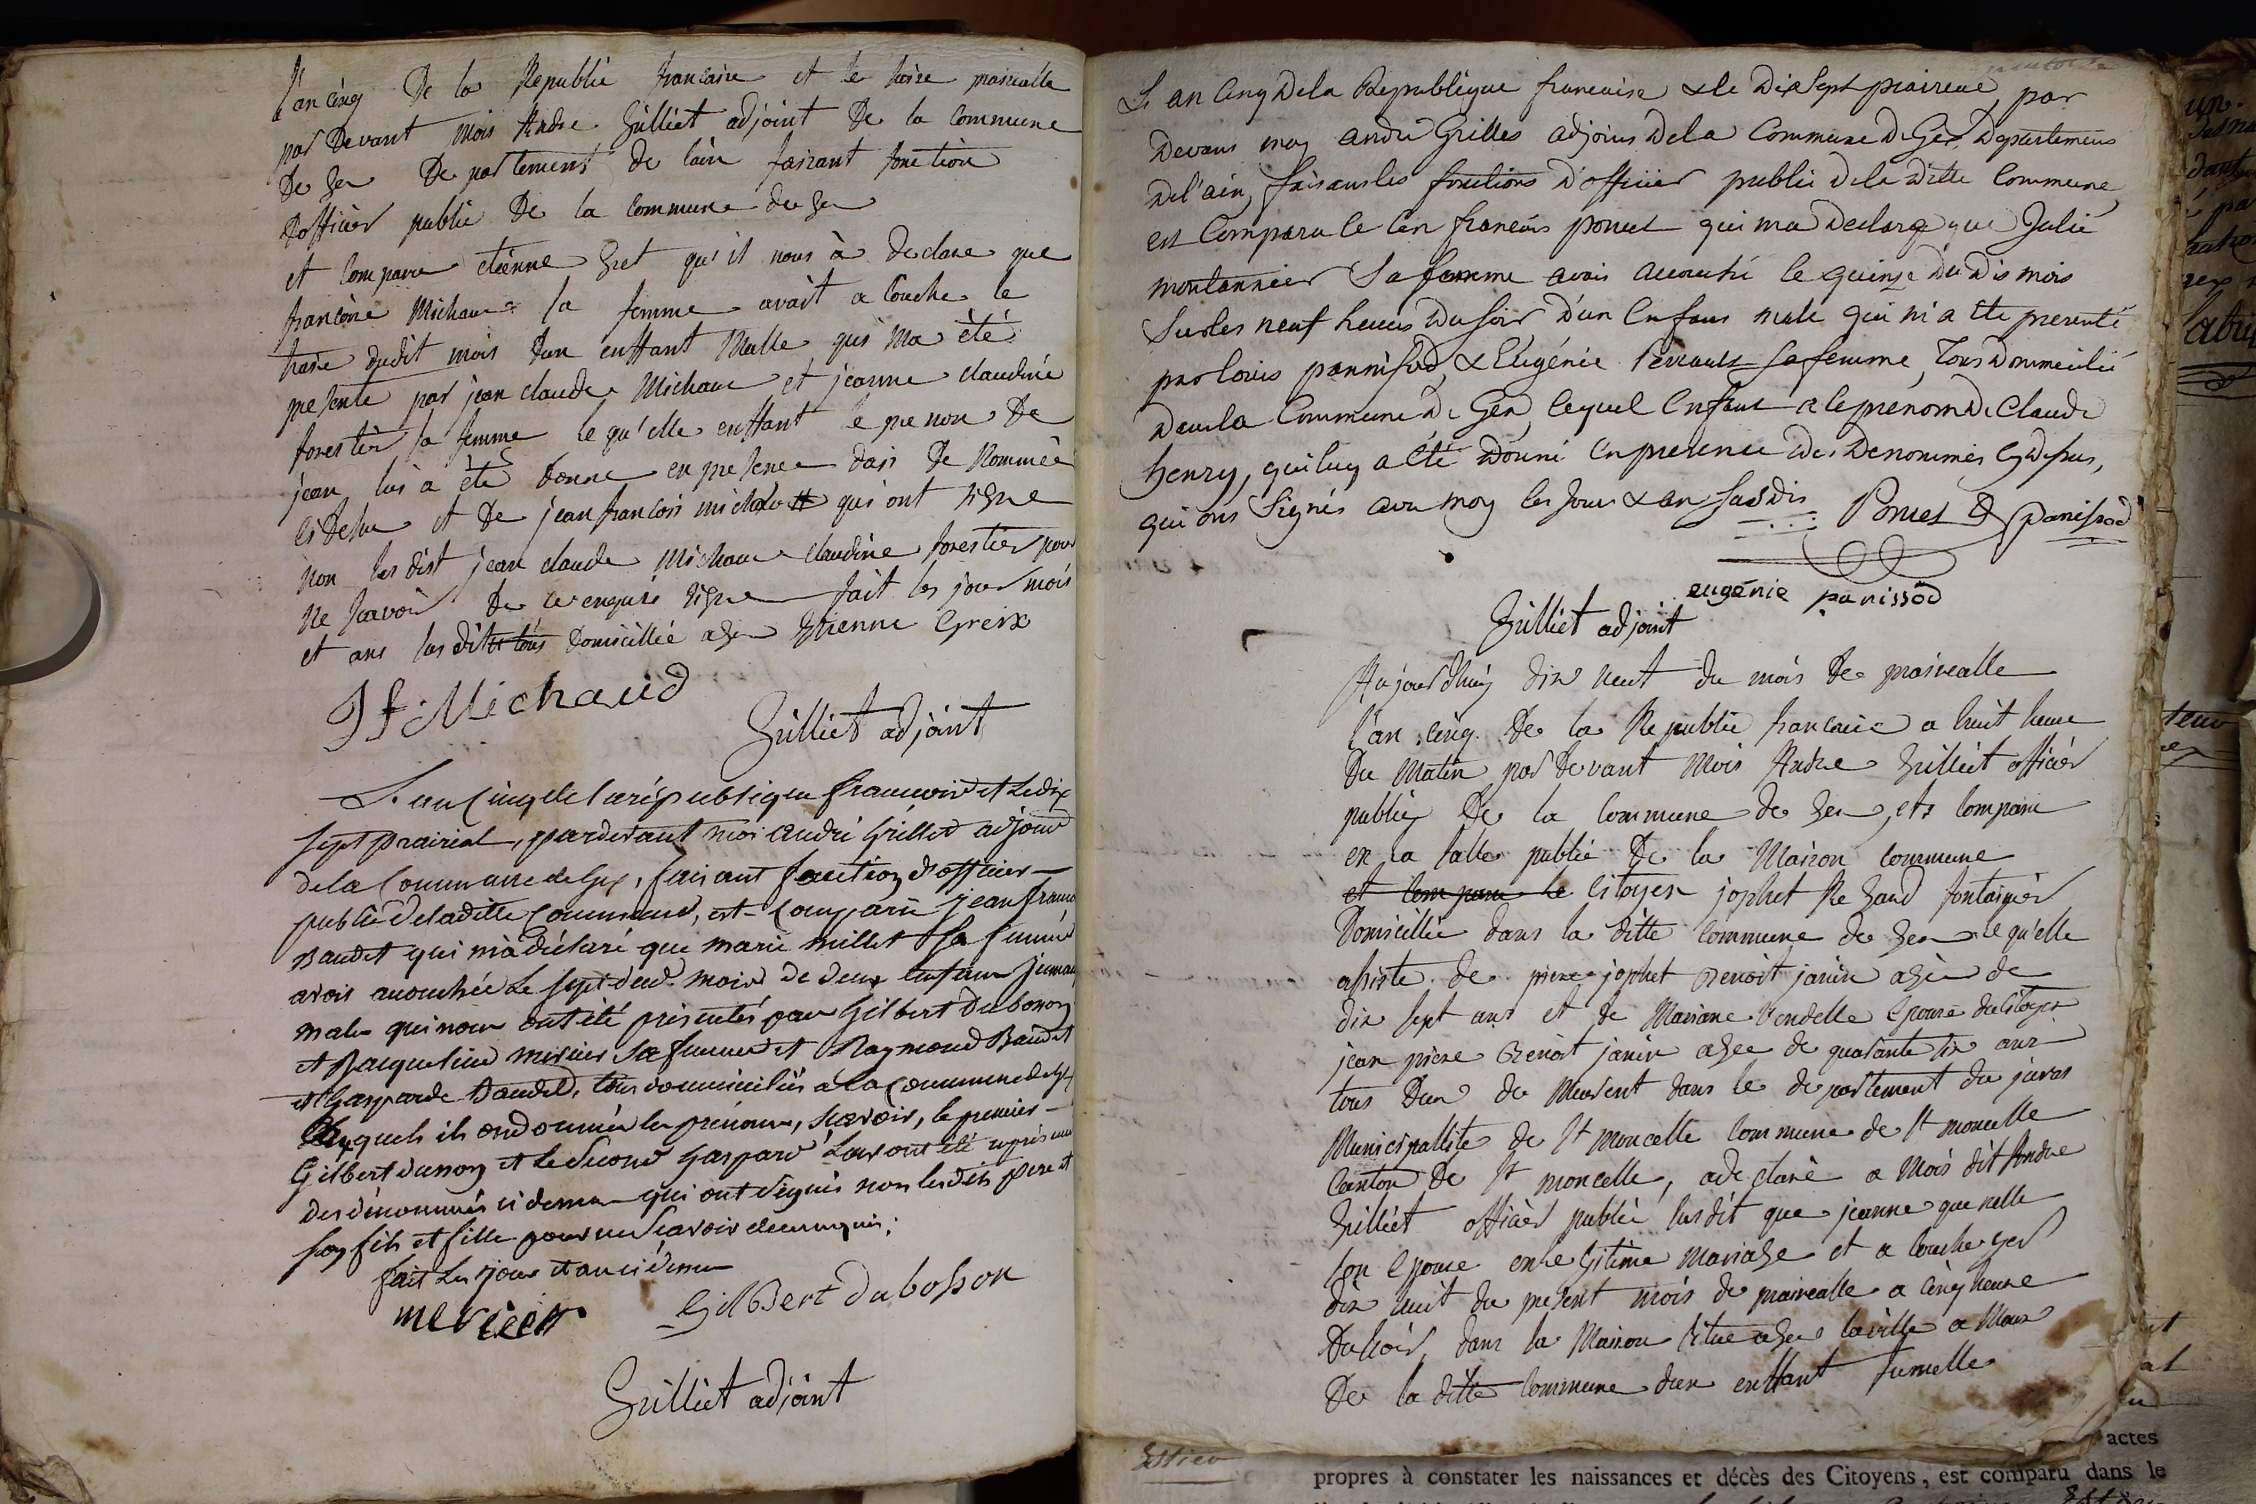 l'an cinq De la Republie francaise et le traise prairealle
par devant mois Andre Grilliet adjoint De la commune
De Gex De partement de lain faisant fonction
D'officier public De la commune de Gex
et compare etienne Gret qu'il nous à declare que
francoise Michaux sa femme avait a Couche le
traise dudit mois dun enffant Malle qui Ma été
presente par jean claude Michaux et jeanne claudine
forestier sa femme le qu'elle enffant le prenon De
jean lui a été donne en presence dais De Nommèè
ci Desu et De jean francois michaux qui ont signe
Non les dist jean claude Michaux claudine forestier pour
Ne savoir De ce enquis signe fait les jour mois
et ans susdit tous Domicillié a Gex Etienne Greix
Jf Michaud
Grilliet adjoint
L'an Cinq de la république francoise et Le dix
sept prairial, pardevant moi andré Grillet adjoint
de la Commune de Gex, faisant fonction d'officier
public de ladite Commune, est Comparu jean franc
Baudet qui m'a déclaré que marie millet sa femme
avoit accouchée Le sept dud. mois de deux enfans jumau
males qui nous ont été présentés par Gilbert Dubosson
et Jacqueline mercier sa femme et Raymond Baudet
et Gasparde Baudet, tous domiciliés à la Commune de Gex
auxquels ils ont donnés les prénoms, scavoir, le premier
Gilbert et le second Gaspard
des dénommés ci dessus qui ont signés non lesdits père et
son fils et fille pour ne scavoir de ce enquis.
fait Les jour et an ci dessus
mercier Gilbert dubosson
Grilliet adjoint
L'an Cinq de la Republique francaise & le Dix Sept prairial, par
Devant moy andré Grilles adjoint de la Commune de Gex, Departement
de l'ain, faisant les fonctions d'officier public de la ditte Commune,
est Comparu le Cen francois poncet qui ma declare que Julie
montannier Sa femme avait accouché le quinze du dis mois
Sur les neuf heures du soir d'un Enfant male qui m'a ete presenté
par louis pannissod, & Eugénie perrault sa femme, Tous Dommicilié
dans la Commune de Gex, lequel Enfant a le prenom de Claude
henry, qui luy a été donné En presence des Denommés Cy dessus,
qui ont Signés avec moy les Jour & an susdis Poncet Panissod
eugénie panissod
Grilliet adjoint
Aujourdhuy dix neuf du mois De prairealle
l'an cinq De la Republie francaise a huit heure
Du Matin par devant Mois Andre Grilliet officier
public De la Commune de Gex, ets Compare
en la salle public De la Maison commune
et Compare le Citoyen jophet Regaud fontainier
Domicillié dans la ditte commune de Gex le qu'elle
assiste de pierre jophet Benoit janin agée de
dix sept ans et de Mariane Vendelle Epouse du Citoyen
jean piere Benoit janin agée de quarante six ans
tous deux de Meurent dans le departement du juras
Municipallite de St moucelle commune de St moucelle
Canton De St moncelle, a declaré a Mois dit Andre
Grilliet officier public susdit que jeanne quenelle
son Epouse en legitime Mariage et a couche yer
dix huit du present mois de prairealle a cinq heure
Du soir, dans la Maison situe a Gex laville a
De la ditte commune dun enffant fumelle
Estier
actes
propres à constater les naissances et décès des Citoyens, est comparu dans le